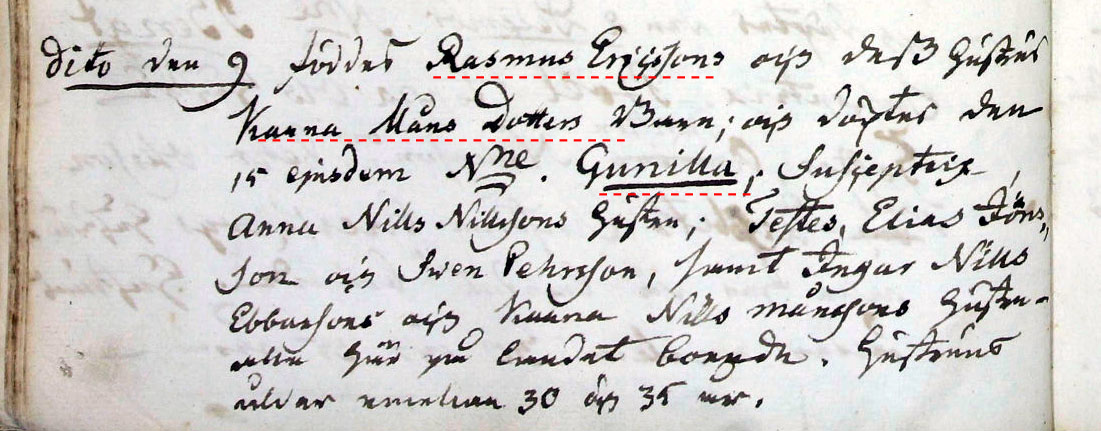 Dito den 9 föddes Rasmus Ericssons och dess Hustrus
Karna Måns Dotters Barn; och döptes den
15 ejusdem Nne. Gunilla, Susceptrix,
Anna Nills Nillssons Hustru; Testes, Elias Jöns-
son och Swen Pehrsson, samt Ingar Nills
Ebbarsons och Karna Nills Månssons Hustru-
alla här på landet boende. Hustruns
ålder emellan 30 och 35 år.